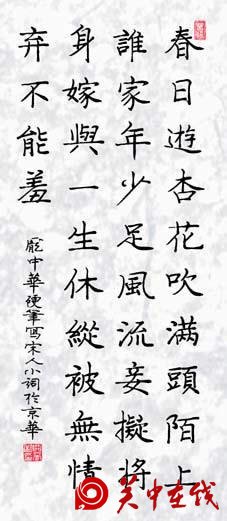 春日遊杏花吹满頭陌上
誰家年少足風流妾擬將
身嫁與一生休縱被無情
弃不能羞
龐中華硬筆寫宋人小詞於京華
关中在线